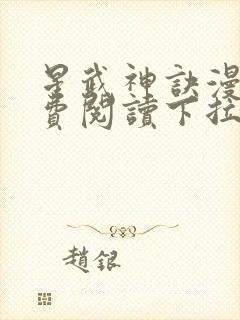 星武神訣漫
費閱讀下拉
趙銀